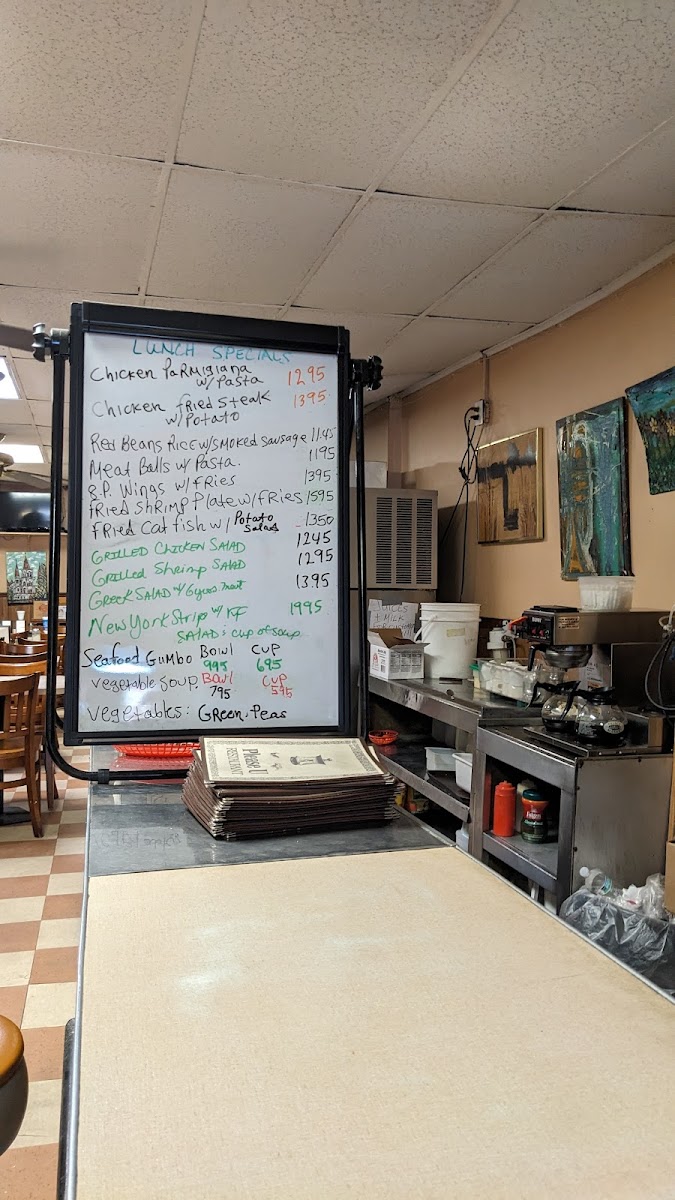 LUNCH SPECIALS
Chicken PaRMigiana
w/ Pasta 1295
Chicken fried Steak 1395
w/ Potato
Red Beans RICE w/ SMoked Sausage 1145
Meat Balls w/ Pasta. 1195
B.P. Wings w/ fRies 1395
fRied ShRiMp Plate w/ fRies 1595
fRied Cat fish w/ Potato Salad 1350
GRILLED Chicken SALAD 1245
Grilled Shrimp SALAD 1295
GReek SALAD w/ Gyros Meat 1395
New York Strip w/ FF 1995
SALAD : cup of soup
Seafood Gumbo Bowl Cup
995 695
Vegetable Soup Bowl Cup
795 595
Vegetables: GReen-Peas
Please-U
RESTAURANT
MILK
BUNN
Folgers